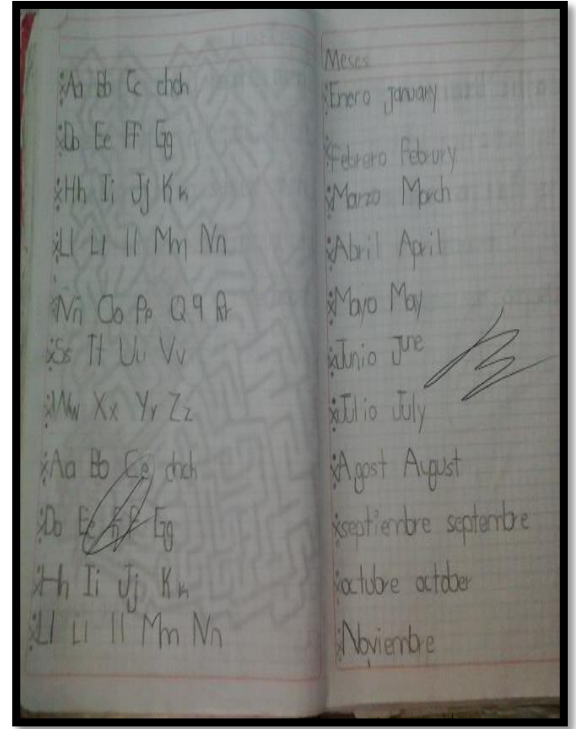 Aa Bb Cc chch
Db Ee Ff Gg
Hh Ii Jj Kk
Ll Ll ll Mm Nn
Nñ Oo Pp Qq Rr
Ss Tt Uu Vv
Ww Xx Yy Zz
Aa Bb Cc chch
Db Ee Ff Gg
Hh Ii Jj Kk
Ll Ll ll Mm Nn
Meses
Enero january
Febrero Februry
Marzo March
Abril April
Mayo May
Junio June
Julio July
Agost August
septiembre septembre
octubre octber
Noviembre